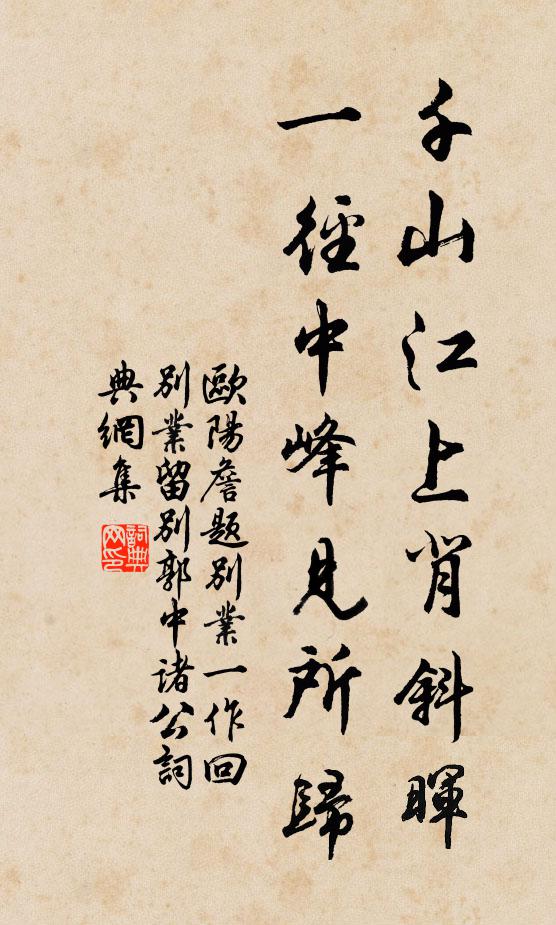 千山江上背斜暉
一徑中峰見所歸
歐陽詹題別業一作回
別業留別郭中諸公詞
典網集
詞典網印